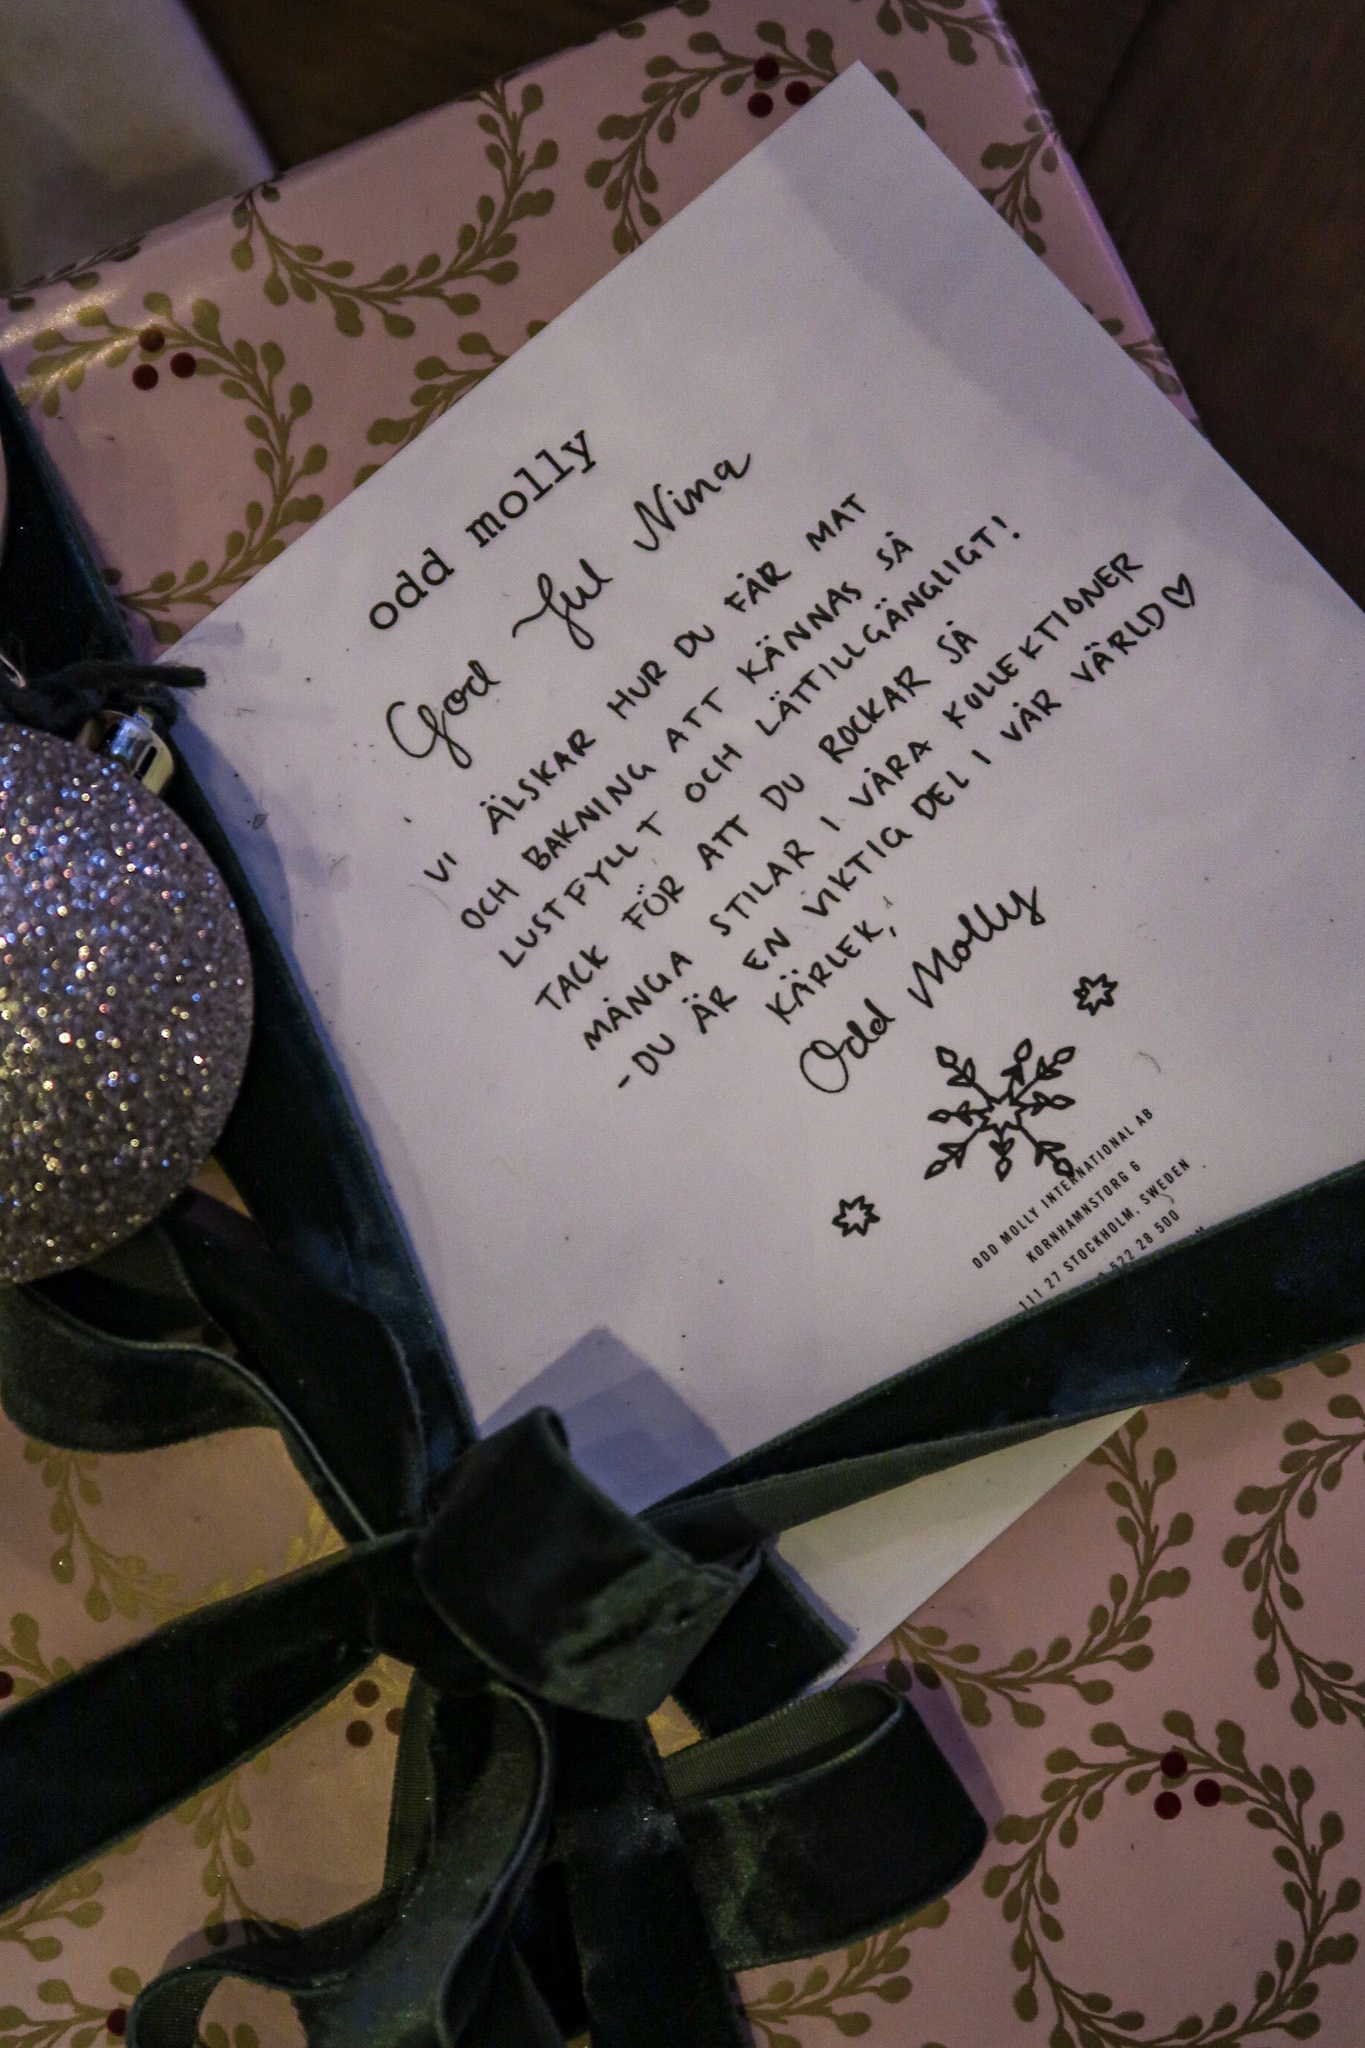 odd molly
God Jul Nina
VI ÄLSKAR HUR DU FÅR MAT
OCH BAKNING ATT KÄNNAS SÅ
LUSTFYLLT OCH LÄTTILLGÄNGLIGT!
TACK FÖR ATT DU ROCKAR SÅ
MÅNGA STILAR I VÅRA KOLLEKTIONER
-DU ÄR EN VIKTIG DEL I VÅR VÄRLD♡
KÄRLEK,
Odd Molly
ODD MOLLY INTERNATIONAL AB
KORNHAMNSTORG 6
111 27 STOCKHOLM, SWEDEN
522 28 500